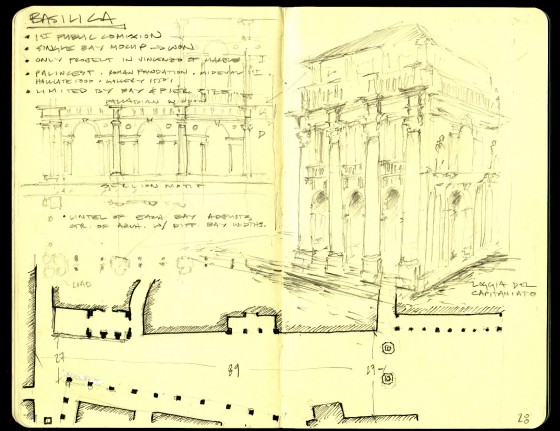 BASILICA
• 1ST PUBLIC COMISSION
• SINGLE BAY MOCKUP → WON
• ONLY PROJECT IN VINCENZO OF MARBLE
• PALINCEST. ROMAN FOUNDATION. MIDEVAL
• LIMITED BY BAY & PIER SIZE
PALLADIAN WINDOW
SERLION MOTIF
• LINTEL OF EACH BAY
W/ DIFF. BAY WIDTHS.
LOGGIA DEL
CAPITANIATO
27
89
28